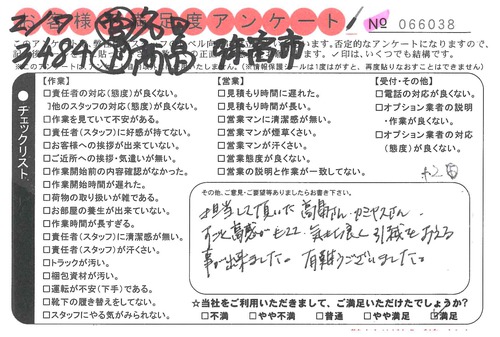 お客様満足度アンケート！
No 066038
チェックリスト
【作業】
□責任者の対応(態度)が良くない。
】他のスタッフの対応(態度)が良くない。
□作業を見ていて不安がある。
□責任者(スタッフ)に好感が持てない。
□お客様への挨拶が出来ていない。
□ご近所への挨拶・気遣いが無い。
□作業開始前の内容確認がなかった。
□作業開始時間が遅れた。
□荷物の取り扱いが雑である。
□お部屋の養生が出来ていない。
□作業時間が長すぎる。
□責任者(スタッフ)に清潔感が無い。
□責任者(スタッフ)が汗くさい。
□トラックが汚い。
□梱包資材が汚い。
□運転が不安(下手)である。
□靴下の履き替えをしてない。
□スタッフにやる気がみられない。
【営業】
□見積もり時間に遅れた。
□見積もり時間が長い。
□営業マンに清潔感が無い。
□営業マンが煙草くさい。
□営業マンが汗くさい。
□営業態度が良くない。
□営業の説明と作業が一致してない。
【受付・その他】
□電話の対応が良くない。
□オプション業者の説明
・作業が良くない。
□オプション業者の対応
(態度)が良くない。
その他、ご意見・ご要望等ありましたらお書き下さい。
担当して頂いた高島さん、
すごく好感がもてて、気持ち良く引越をおえる
事が出来ました。有難うございました。
☆当社をご利用いただきまして、ご満足いただけたでしょうか?
□不満 □やや不満 □普通 □やや満足 ☑満足